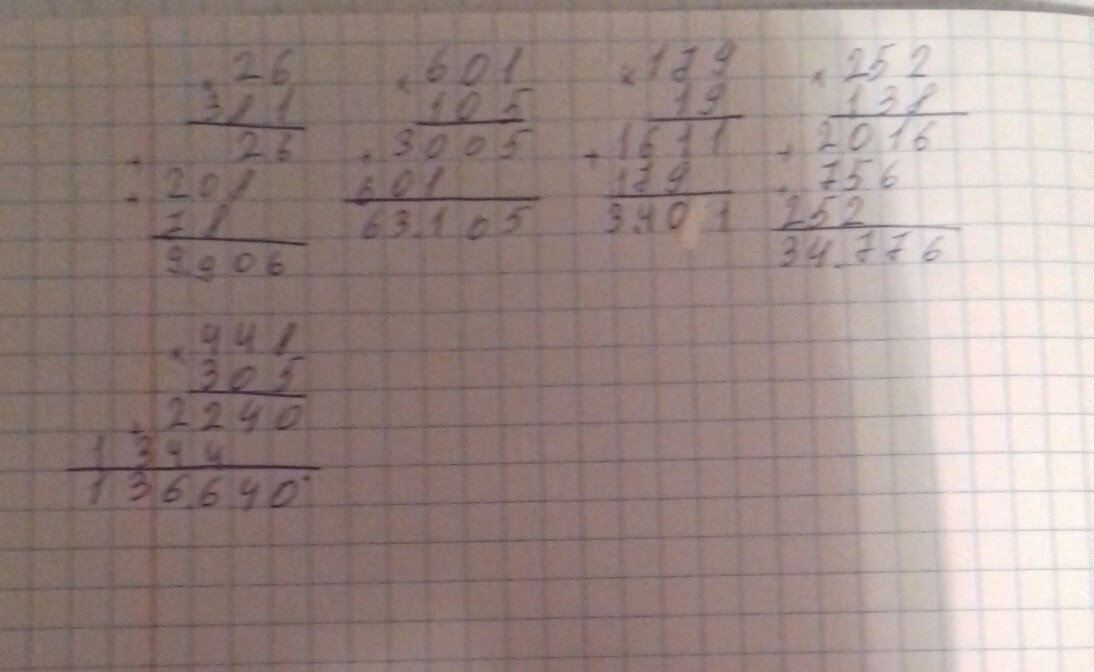 × 26
381
26
+ 208
+ 78
9.906
× 601
105
3005
+ 601
63.105
× 179
19
1611
+ 179
3.401
× 252
138
2016
+ 756
+ 252
34.776
× 448
305
2240
+ 1344
136.640